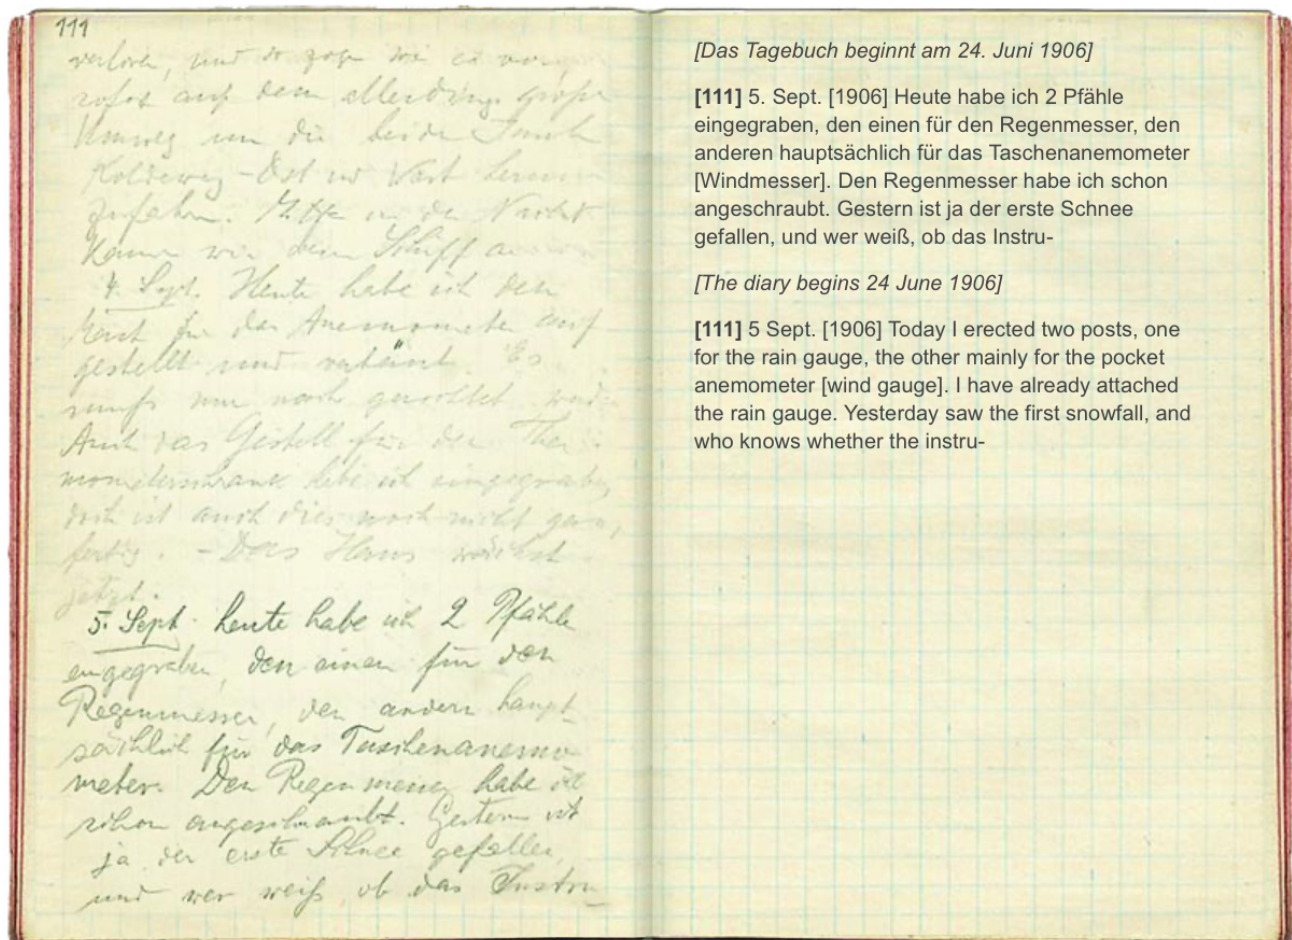 111
verloren, und so zogen wir es vor,
sofort auf dem allerdings großen
Umweg um die beiden Inseln
Koldewey-Ost und West herum
zufahren. Mitte in der Nacht
kamen wir dem Schiff
4. Sept. Heute habe ich den
Mast für das Anemometer auf
gestellt und vertäut. Es
muß nur noch werden
Auch das Gestell für den Ther-
mometerschrank habe ich eingegraben
doch ist auch dies noch nicht ganz
fertig. - Das Haus wächst
jetzt.
5. Sept. heute habe ich 2 Pfähle
eingegraben, den einen für den
Regenmesser, den andern haupt-
sächlich für das Taschenanemo
meter. Den Regenmesser habe ich
schon angeschraubt. Gestern ist
ja der erste Schnee gefallen,
und wer weiß, ob das Instru-
[Das Tagebuch beginnt am 24. Juni 1906]
[111] 5. Sept. [1906] Heute habe ich 2 Pfähle
eingegraben, den einen für den Regenmesser, den
anderen hauptsächlich für das Taschenanemometer
[Windmesser]. Den Regenmesser habe ich schon
angeschraubt. Gestern ist ja der erste Schnee
gefallen, und wer weiß, ob das Instru-
[The diary begins 24 June 1906]
[111] 5 Sept. [1906] Today I erected two posts, one
for the rain gauge, the other mainly for the pocket
anemometer [wind gauge]. I have already attached
the rain gauge. Yesterday saw the first snowfall, and
who knows whether the instru-